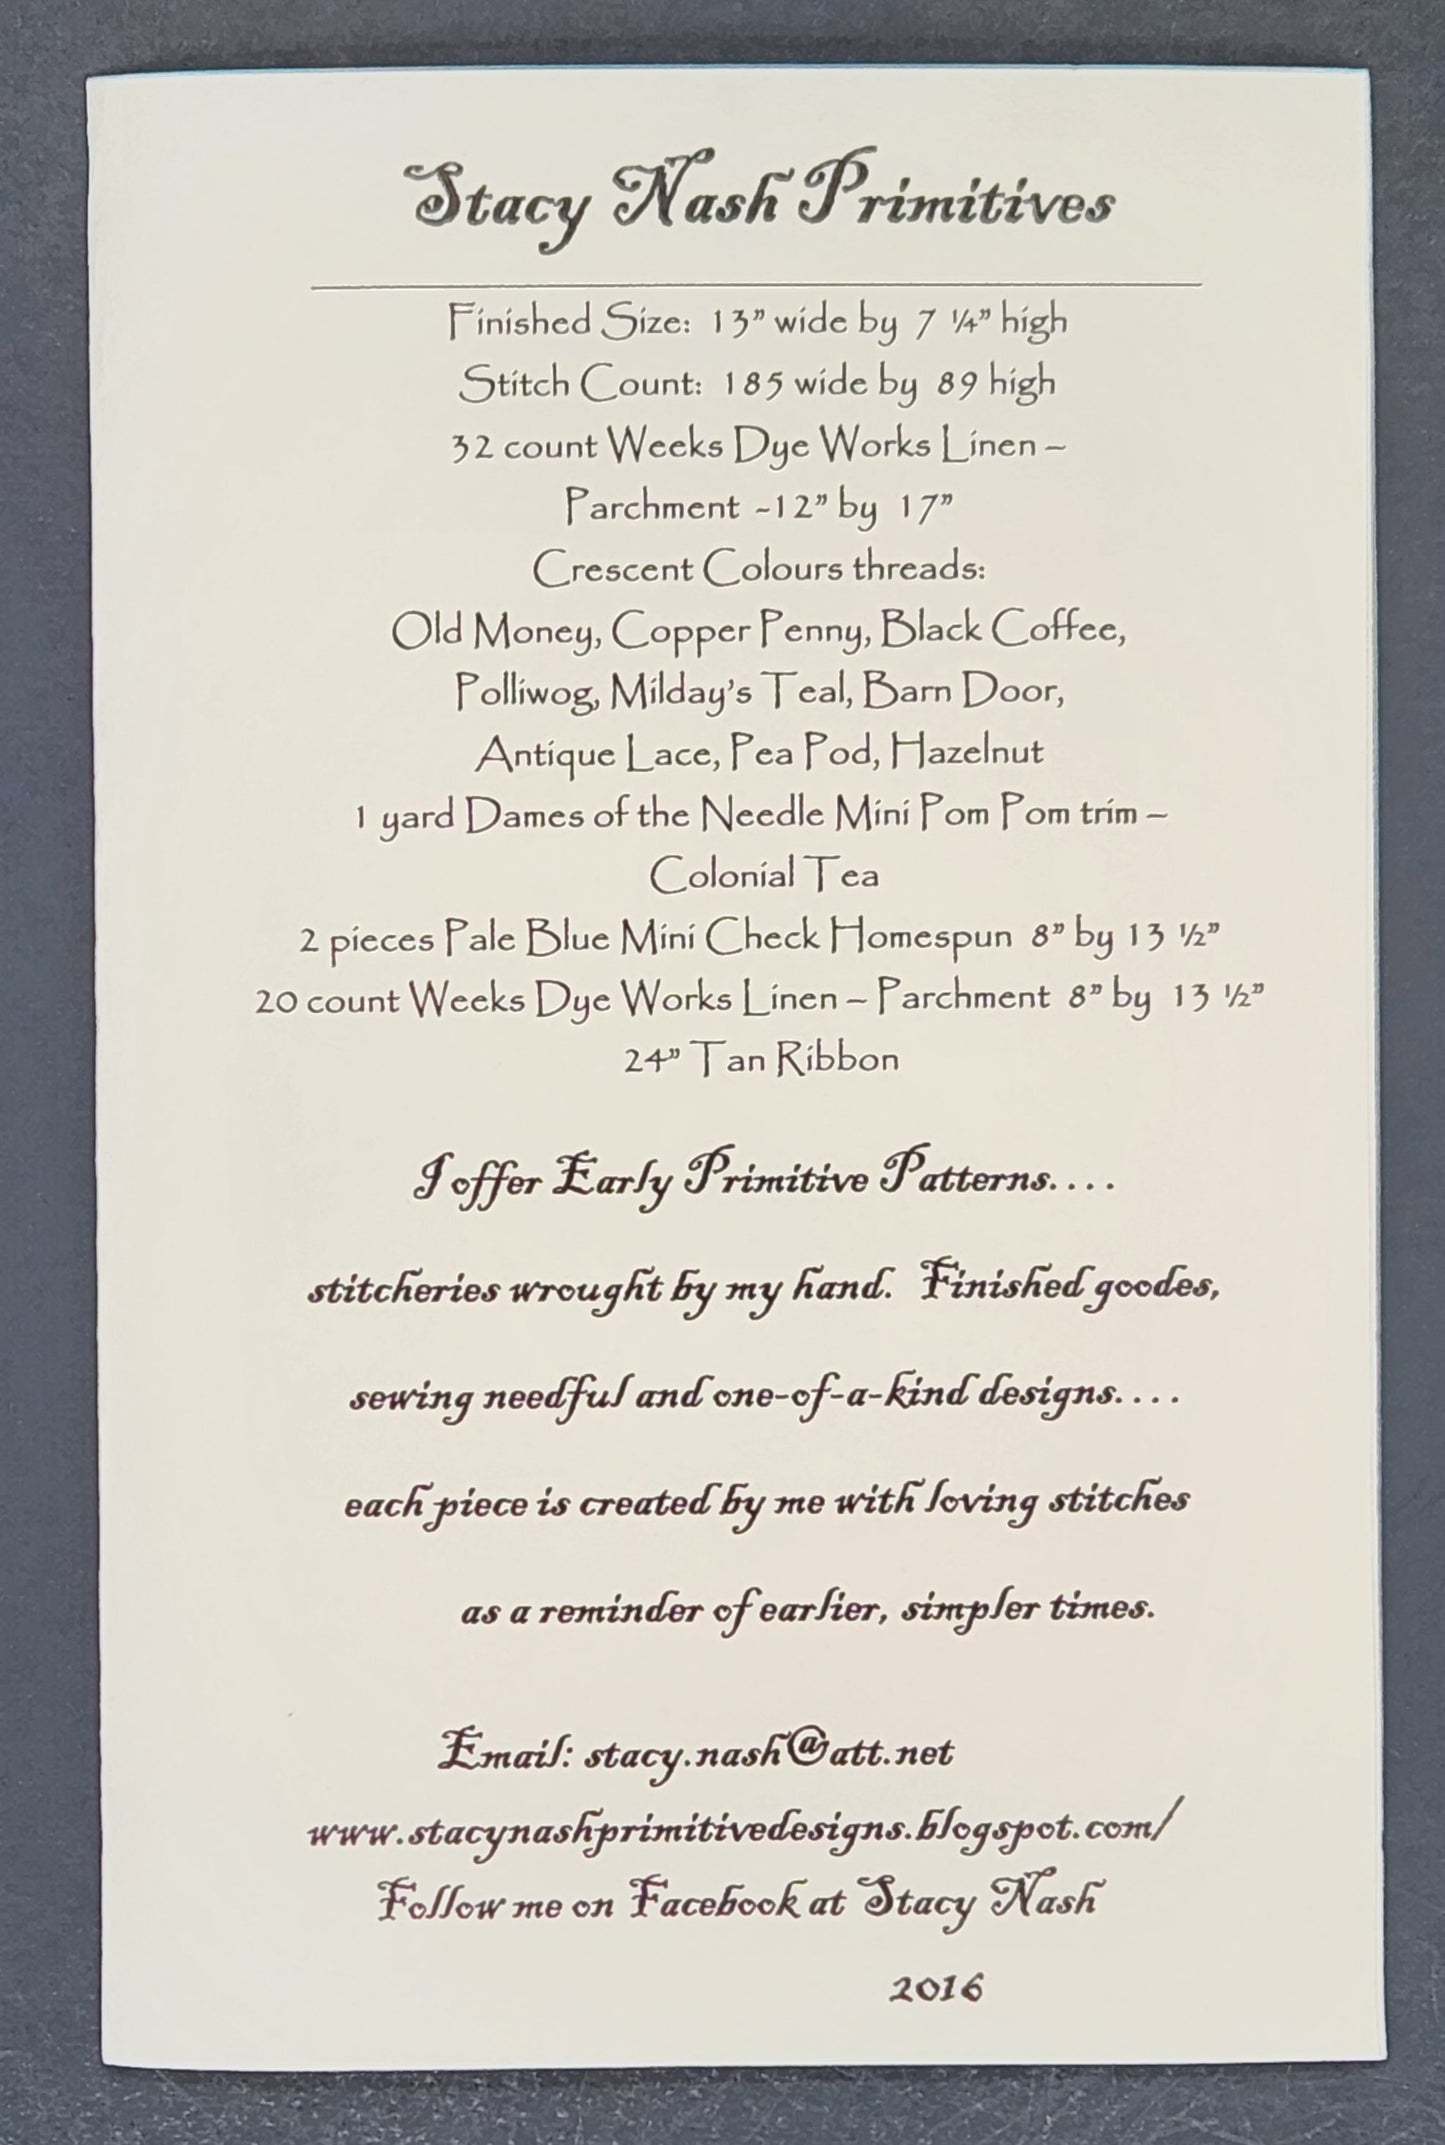 Stacy Nash Primitives
Finished Size: 13” wide by 7 ¼” high
Stitch Count: 185 wide by 89 high
32 count Weeks Dye Works Linen –
Parchment ~12” by 17”
Crescent Colours threads:
Old Money, Copper Penny, Black Coffee,
Polliwog, Milday’s Teal, Barn Door,
Antique Lace, Pea Pod, Hazelnut
1 yard Dames of the Needle Mini Pom Pom trim –
Colonial Tea
2 pieces Pale Blue Mini Check Homespun 8” by 13 ½”
20 count Weeks Dye Works Linen – Parchment 8” by 13 ½”
24” Tan Ribbon
I offer Early Primitive Patterns....
stitcheries wrought by my hand. Finished goodes,
sewing needful and one-of-a-kind designs....
each piece is created by me with loving stitches
as a reminder of earlier, simpler times.
Email: stacy.nash@att.net
www.stacynashprimitivedesigns.blogspot.com/
Follow me on Facebook at Stacy Nash
2016